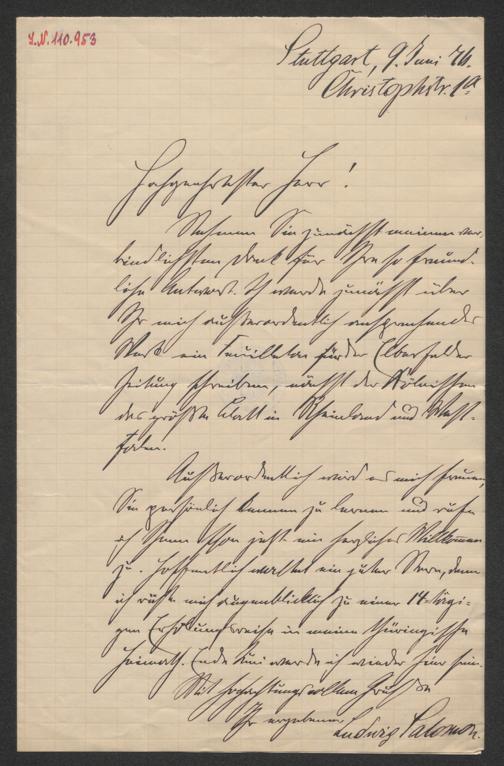 I.N. 110.953
Stuttgart, 9. Juni 76.
Christophstr. 1a
Hochgeehrtester Herr!
Nehmen Sie zunächst meinen ver-
bindlichsten Dank für Ihre so freund-
liche Antwort. Ich werde zunächst über
Ihr mich außerordentlich ansprechendes
Werk ein Feuilleton für der Elberfelder
Zeitung schreiben, nächst der Kölnischen
das größte Blatt in Rheinland und West-
falen.
Außerordentlich wird es mich freuen,
Sie persönlich kennen zu lernen und rufe
ich Ihnen schon jetzt ein herzliches Willkommen
zu. Hoffentlich waltet ein guter Stern, denn
ich rüste mich augenblicklich zu einer 14-tägi-
gen Erholungsreise in meine thüringische
Heimath. Ende Juni werde ich wieder hier sein.
Mit hochachtungsvollem Gruß
Ihr ergebener
Ludwig Salomon.